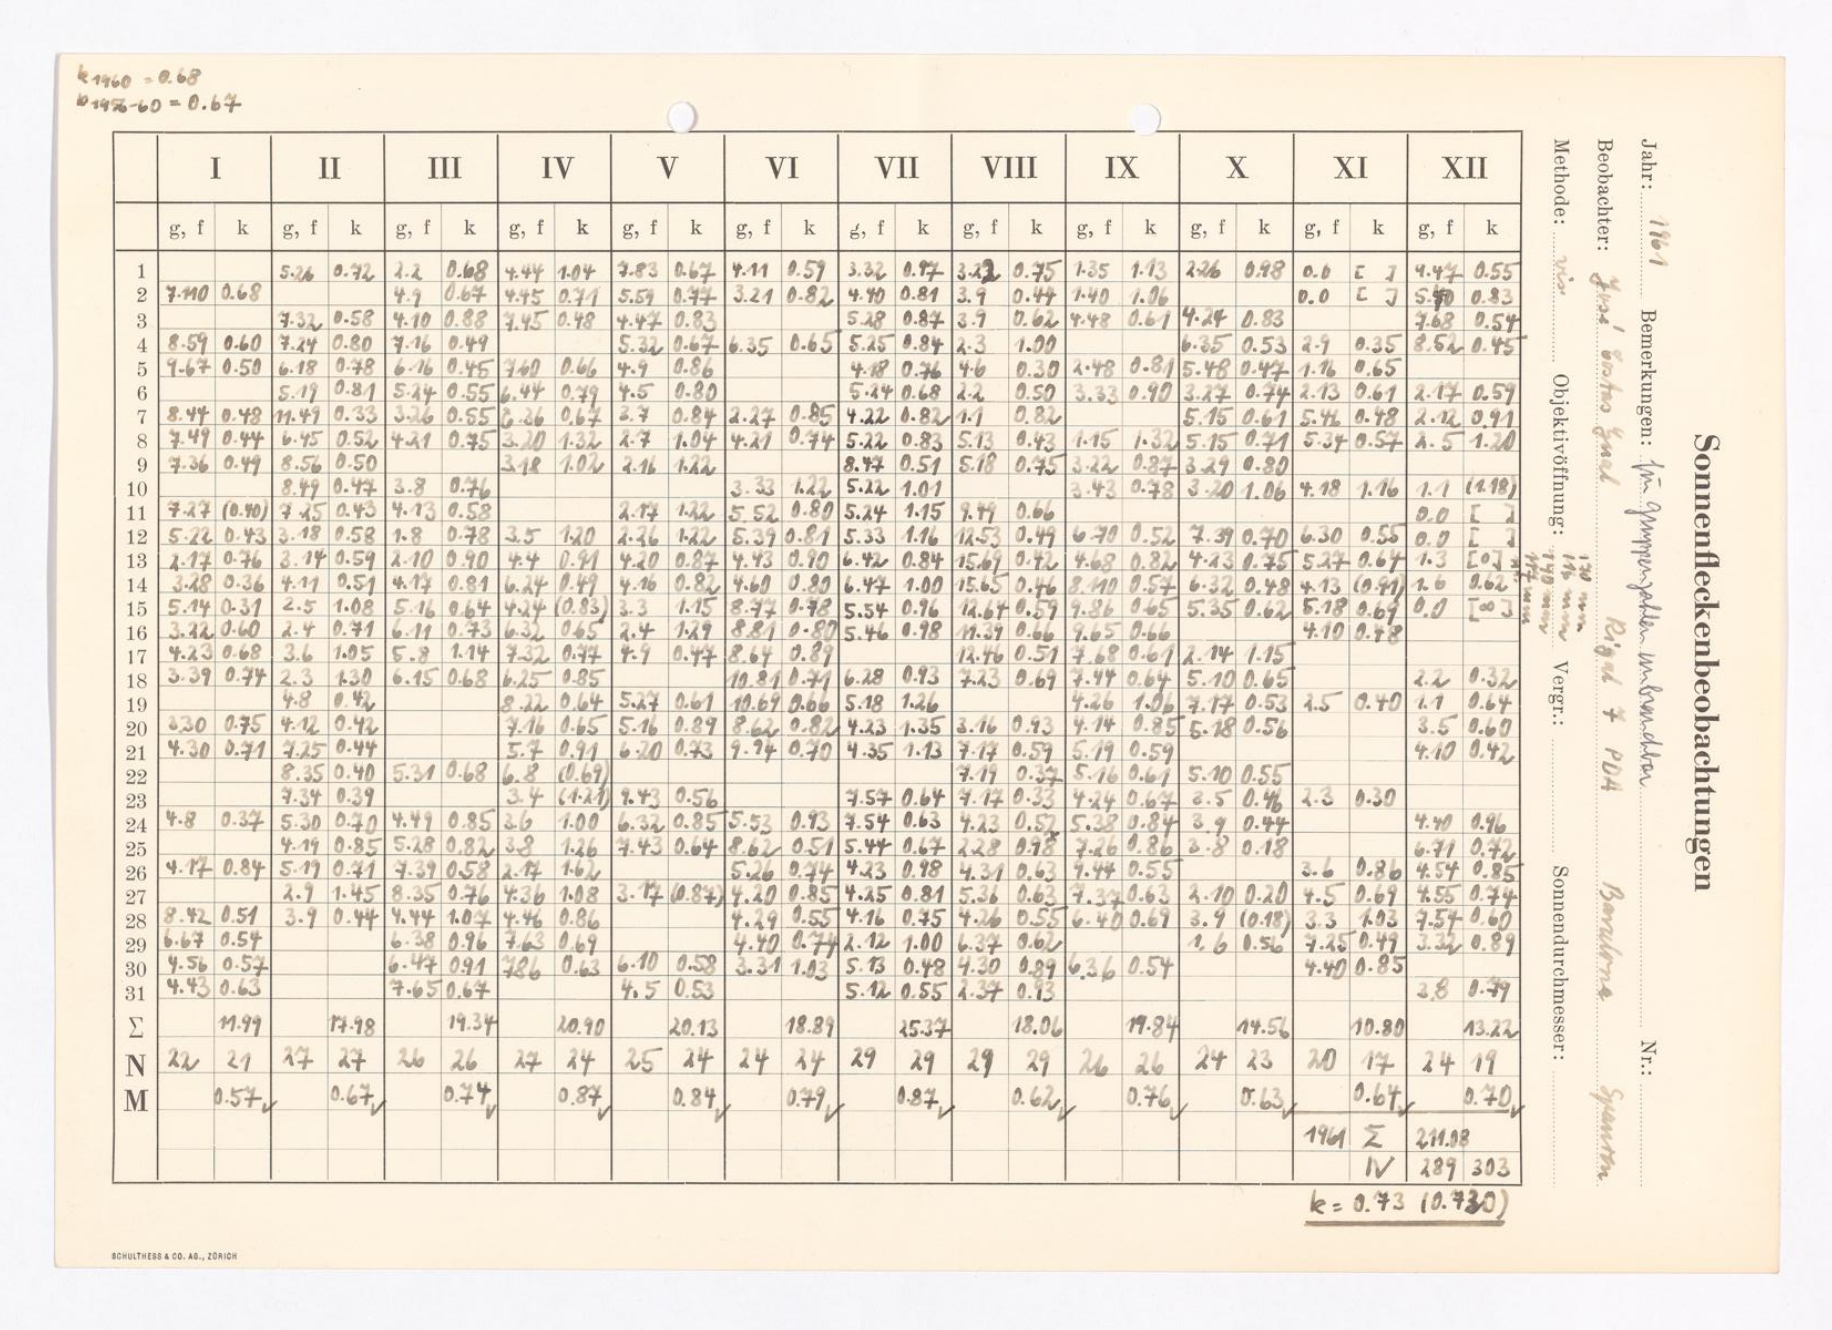 k 1960 = 0.68
b 1956-60 = 0.67
Sonnenfleckenbeobachtungen
Jahr: 1961 Bemerkungen: für Gruppenzahlen unbrauchbar Nr.:
Beobachter: Barcelona Spanien
Methode: vis Objektivöffnung: 170 mm Vergr.: Sonnendurchmesser:
I II III IV V VI VII VIII IX X XI XII
g, f k g, f k g, f k g, f k g, f k g, f k g, f k g, f k g, f k g, f k g, f k g, f k
1 5.26 0.72 2.2 0.68 4.44 1.04 7.83 0.67 4.11 0.59 3.32 0.97 0.75 1.35 1.13 2.26 0.98 0.0 [ ] 4.47 0.55
2 7.110 0.68 4.9 0.67 4.45 0.71 5.59 0.77 3.21 0.82 4.40 0.81 3.9 0.44 1.40 1.06 0.0 [ ] 0.83
3 7.32 0.58 4.10 0.88 7.45 0.48 4.47 0.83 5.28 0.87 3.9 0.62 4.48 0.61 4.24 0.83 7.68 0.54
4 8.59 0.60 7.24 0.80 7.16 0.49 5.32 0.67 6.35 0.65 5.25 0.84 2.3 1.00 6.35 0.53 2.9 0.35 8.52 0.45
5 9.67 0.50 6.18 0.78 6.16 0.45 7.60 0.66 4.9 0.86 4.18 0.76 4.6 0.30 2.48 0.81 5.48 0.47 1.16 0.65
6 5.19 0.81 5.24 0.55 6.44 0.79 4.5 0.80 5.24 0.68 2.2 0.50 3.33 0.90 3.27 0.74 2.13 0.61 2.17 0.59
7 8.44 0.48 11.49 0.33 3.26 0.55 0.67 2.7 0.84 2.27 0.85 4.22 0.82 1.1 0.82 5.15 0.61 5.46 0.48 2.12 0.91
8 7.49 0.44 6.45 0.52 4.21 0.75 3.20 1.32 2.7 1.04 4.21 0.74 5.22 0.83 5.13 0.43 1.15 1.32 5.15 0.71 5.34 0.57 2.5 1.20
9 7.36 0.49 8.56 0.50 3.18 1.02 2.16 1.22 8.47 0.51 5.18 0.75 3.22 0.87 3.29 0.80
10 8.49 0.47 3.8 0.76 3.33 1.22 5.22 1.01 3.43 0.78 3.20 1.06 4.18 1.16 1.1 (1.18)
11 7.27 (0.40) 7.25 0.43 4.13 0.58 2.17 1.22 5.52 0.80 5.24 1.15 9.49 0.66 0.0 [ ]
12 5.22 0.43 3.18 0.58 1.8 0.78 3.5 1.20 2.26 1.22 5.39 0.81 5.33 1.16 12.53 0.49 6.70 0.52 7.39 0.70 6.30 0.55 0.0 [ ]
13 2.17 0.76 3.14 0.59 2.10 0.90 4.4 0.91 4.20 0.87 4.43 0.90 6.42 0.84 15.69 0.42 4.68 0.82 4.23 0.75 5.27 0.64 1.3 [0]
14 3.28 0.36 4.11 0.51 4.17 0.81 6.24 0.49 4.16 0.82 4.60 0.80 6.47 1.00 15.65 0.46 8.110 0.57 6.32 0.48 4.13 (0.91) 1.6 0.62
15 5.14 0.31 2.5 1.08 5.16 0.64 4.24 (0.83) 3.3 1.15 8.77 0.78 5.54 0.96 12.64 0.59 9.86 0.65 5.35 0.62 5.18 0.69 0.0 [∞]
16 3.22 0.60 2.4 0.71 6.11 0.73 6.32 0.65 2.4 1.29 8.81 0.80 5.46 0.98 11.39 0.66 9.65 0.66 4.10 0.78
17 4.23 0.68 3.6 1.05 5.8 1.14 7.32 0.77 4.9 0.47 8.64 0.89 12.46 0.51 7.68 0.61 2.14 1.15
18 3.39 0.74 2.3 1.30 6.15 0.68 6.25 0.85 10.81 0.71 6.28 0.93 7.23 0.69 7.44 0.64 5.10 0.65 2.2 0.32
19 4.8 0.42 8.22 0.64 5.27 0.61 10.69 0.66 5.18 1.26 4.26 1.06 7.17 0.53 2.5 0.40 1.1 0.64
20 3.30 0.75 4.12 0.42 7.16 0.65 5.16 0.89 8.62 0.82 4.23 1.35 3.16 0.93 4.14 0.85 5.18 0.56 3.5 0.60
21 4.30 0.71 7.25 0.44 5.7 0.91 6.20 0.73 9.74 0.70 4.35 1.13 7.17 0.59 5.19 0.59 4.10 0.42
22 8.35 0.40 5.31 0.68 6.8 (0.69) 7.19 0.37 5.16 0.61 5.10 0.55
23 7.34 0.39 3.4 (1.21) 9.43 0.56 7.57 0.64 7.17 0.33 4.24 0.67 2.5 0.46 2.3 0.30
24 4.8 0.37 5.30 0.70 4.49 0.85 3.6 1.00 6.32 0.85 5.53 0.93 7.54 0.63 4.23 0.52 5.38 0.84 3.9 0.44 4.40 0.96
25 4.19 0.85 5.28 0.82 3.8 1.26 7.43 0.64 8.62 0.51 5.44 0.67 2.28 0.98 7.26 0.86 3.8 0.18 6.71 0.72
26 4.17 0.84 5.19 0.71 7.39 0.58 2.17 1.62 5.26 0.74 4.23 0.98 4.31 0.63 9.44 0.55 3.6 0.86 4.54 0.85
27 2.9 1.45 8.35 0.76 4.36 1.08 3.17 (0.87) 4.20 0.85 4.25 0.81 5.36 0.63 7.37 0.63 2.10 0.20 4.5 0.69 4.55 0.74
28 8.42 0.51 3.9 0.44 4.44 1.07 4.46 0.86 4.29 0.55 4.16 0.75 4.26 0.55 6.40 0.69 3.9 (0.18) 3.3 1.03 7.54 0.60
29 6.67 0.54 6.38 0.96 7.63 0.69 4.40 0.74 2.12 1.00 6.37 0.62 1.6 0.56 7.25 0.49 3.32 0.89
30 4.56 0.57 6.47 0.91 7.86 0.63 6.10 0.58 3.31 1.03 5.13 0.48 4.30 0.89 6.36 0.54 4.40 0.85
31 4.43 0.63 7.65 0.67 4.5 0.53 5.12 0.55 2.37 0.93 3.8 0.79
Σ 11.99 17.98 19.34 20.90 20.13 18.89 25.37 18.06 19.84 14.56 10.80 13.22
N 22 21 27 27 26 26 27 24 25 24 24 24 29 29 29 29 26 26 24 23 20 17 24 19
M 0.57 0.67 0.74 0.87 0.84 0.79 0.87 0.62 0.76 0.63 0.64 0.70
1961 Σ 211.08
N 289 303
k = 0.73 (0.730)
SCHULTHESS & CO. AG., ZÜRICH